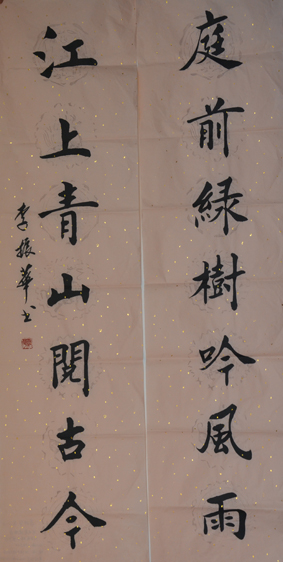 庭前綠樹吟風雨
江上青山閱古今
李振華书